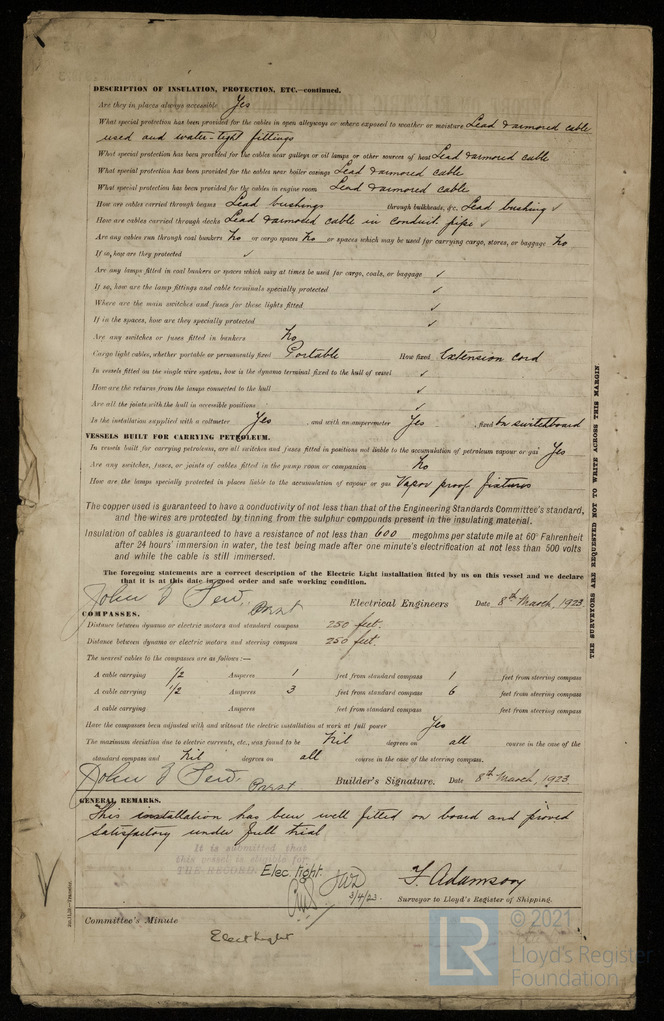 DESCRIPTION OF INSULATION, PROTECTION, ETC.—continued.
Are they in places always accessible Yes
What special protection has been provided for the cables in open alleyways or where exposed to weather or moisture Lead & armored cable
used and water-tight fittings
What special protection has been provided for the cables near galleys or oil lamps or other sources of heat Lead & armored cable
What special protection has been provided for the cables near boiler casings Lead & armored cable
What special protection has been provided for the cables in engine room Lead & armored cable
How are cables carried through beams Lead bushings through bulkheads, &c. Lead bushing ✓
How are cables carried through decks Lead & armored cable in conduit pipe ✓
Are any cables run through coal bunkers No or cargo spaces No or spaces which may be used for carrying cargo, stores, or baggage No
If so, how are they protected ✓
Are any lamps fitted in coal bunkers or spaces which may at times be used for cargo, coals, or baggage ✓
If so, how are the lamp fittings and cable terminals specially protected ✓
Where are the main switches and fuses for these lights fitted ✓
If in the spaces, how are they specially protected ✓
Are any switches or fuses fitted in bunkers No
Cargo light cables, whether portable or permanently fixed Portable How fixed Extension cord
In vessels fitted on the single wire system, how is the dynamo terminal fixed to the hull of vessel ✓
How are the returns from the lamps connected to the hull ✓
Are all the joints with the hull in accessible positions ✓
Is the installation supplied with a voltmeter Yes, and with an amperemeter Yes, fixed on switchboard
VESSELS BUILT FOR CARRYING PETROLEUM.
In vessels built for carrying petroleum, are all switches and fuses fitted in positions not liable to the accumulation of petroleum vapour or gas Yes
Are any switches, fuses, or joints of cables fitted in the pump room or companion No
How are the lamps specially protected in places liable to the accumulation of vapour or gas Vapor proof fixtures
The copper used is guaranteed to have a conductivity of not less than that of the Engineering Standards Committee's standard,
and the wires are protected by tinning from the sulphur compounds present in the insulating material.
Insulation of cables is guaranteed to have a resistance of not less than 600 megohms per statute mile at 60° Fahrenheit
after 24 hours' immersion in water, the test being made after one minute's electrification at not less than 500 volts
and while the cable is still immersed.
The foregoing statements are a correct description of the Electric Light installation fitted by us on this vessel and we declare
that it is at this date in good order and safe working condition.
John Electrical Engineers Date 8th March, 1923
COMPASSES.
Distance between dynamo or electric motors and standard compass 250 feet.
Distance between dynamo or electric motors and steering compass 250 feet.
The nearest cables to the compasses are as follows:—
A cable carrying 1/2 Amperes 1 feet from standard compass 1 feet from steering compass
A cable carrying 1/2 Amperes 3 feet from standard compass 6 feet from steering compass
A cable carrying Amperes feet from standard compass feet from steering compass
Have the compasses been adjusted with and without the electric installation at work at full power Yes
The maximum deviation due to electric currents, etc., was found to be Nil degrees on all course in the case of the
standard compass and Nil degrees on all course in the case of the steering compass.
John Builder's Signature. Date 8th March, 1923
GENERAL REMARKS.
This installation has been well fitted on board and proved
satisfactory under full trial
It is submitted that
this vessel is eligible for
THE RECORD. Elec. light.
JWD
3/4/23.
F. Adamson
Surveyor to Lloyd's Register of Shipping.
Committee's Minute
Elect Light
THE SURVEYORS ARE REQUESTED NOT TO WRITE ACROSS THIS MARGIN.
LR © 2021
Lloyd's Register
Foundation